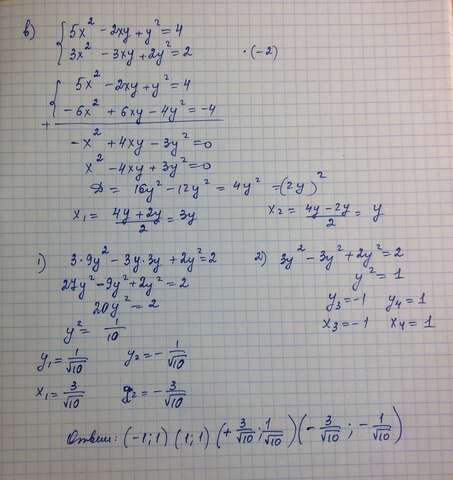 в) { 5x² - 2xy + y² = 4
3x² - 3xy + 2y² = 2 ·(-2)
{ 5x² - 2xy + y² = 4
+ -6x² + 6xy - 4y² = -4
-x² + 4xy - 3y² = 0
x² - 4xy + 3y² = 0
D = 16y² - 12y² = 4y² = (2y)²
x₁ = (4y + 2y)/2 = 3y x₂ = (4y - 2y)/2 = y
1) 3·9y² - 3y·3y + 2y² = 2
27y² - 9y² + 2y² = 2
20y² = 2
y² = 1/10
y₁ = 1/√10 y₂ = -1/√10
x₁ = 3/√10 x₂ = -3/√10
2) 3y² - 3y² + 2y² = 2
y² = 1
y₃ = -1 y₄ = 1
x₃ = -1 x₄ = 1
Ответ: (-1; 1) (1; 1) (+3/√10; 1/√10) (-3/√10; -1/√10)